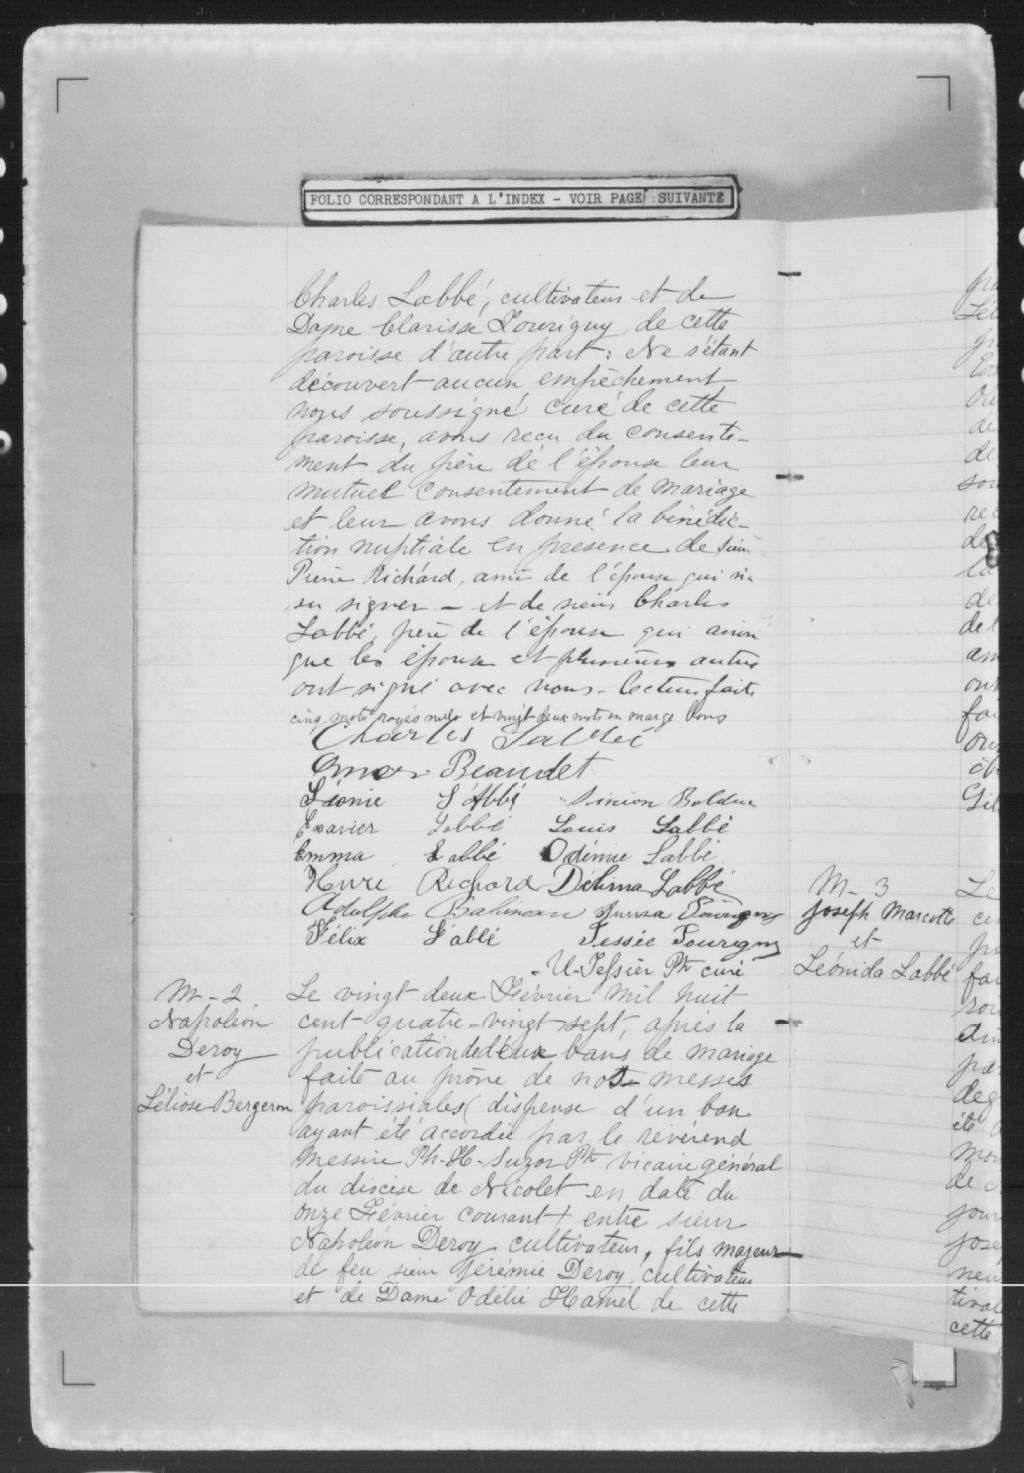 FOLIO CORRESPONDANT A L'INDEX - VOIR PAGE : SUIVANTE
Charles Labbé, cultivateur et de
Dame Clarisse Tourigny de cette
paroisse d'autre part : Ne s'étant
découvert aucun empêchement
nous soussigné curé de cette
paroisse, avons reçu du consente-
ment du père de l'épouse leur
mutuel consentement de mariage
et leur avons donné la bénédic-
tion nuptiale en presence de sieur
Pierre Richard, ami de l'époux qui n'a
su signer - et de sieur Charles
Labbé, père de l'épouse qui ainsi
que les époux et plusieurs autres
ont signé avec nous - lecture faite
cinq mots rayés nuls et vingt deux mots en marge bons
Charles Labbé
Omer Beaudet
Léonie L'Abbé Simeon Bolduc
Exavier Labbé Louis Labbé
Emma Labbé Labbé
Henre Richard Délima Labbé
Adolphe
Félix Labbé Jessée Tourigny
U-Tessier Ptr curé
M-2.
Napoléon
Deroy
et
Léliose Bergeron
Le vingt deux Février mil huit
cent quatre-vingt sept, après la
publication de deux bans de mariage
faite au prône de nos messes
paroissiales (dispense d'un ban
ayant été accordée par le révérend
Messire Ph-H-Suzor Ptr vicaire général
du diocèse de Nicolet en date du
onze Février courant) entre sieur
Napoléon Deroy cultivateur, fils majeur
de feu sieur Jérémie Deroy, cultivateur
et de Dame Odélie Hamel de cette
M-3
Joseph Marcotte
et
Léonida Labbé